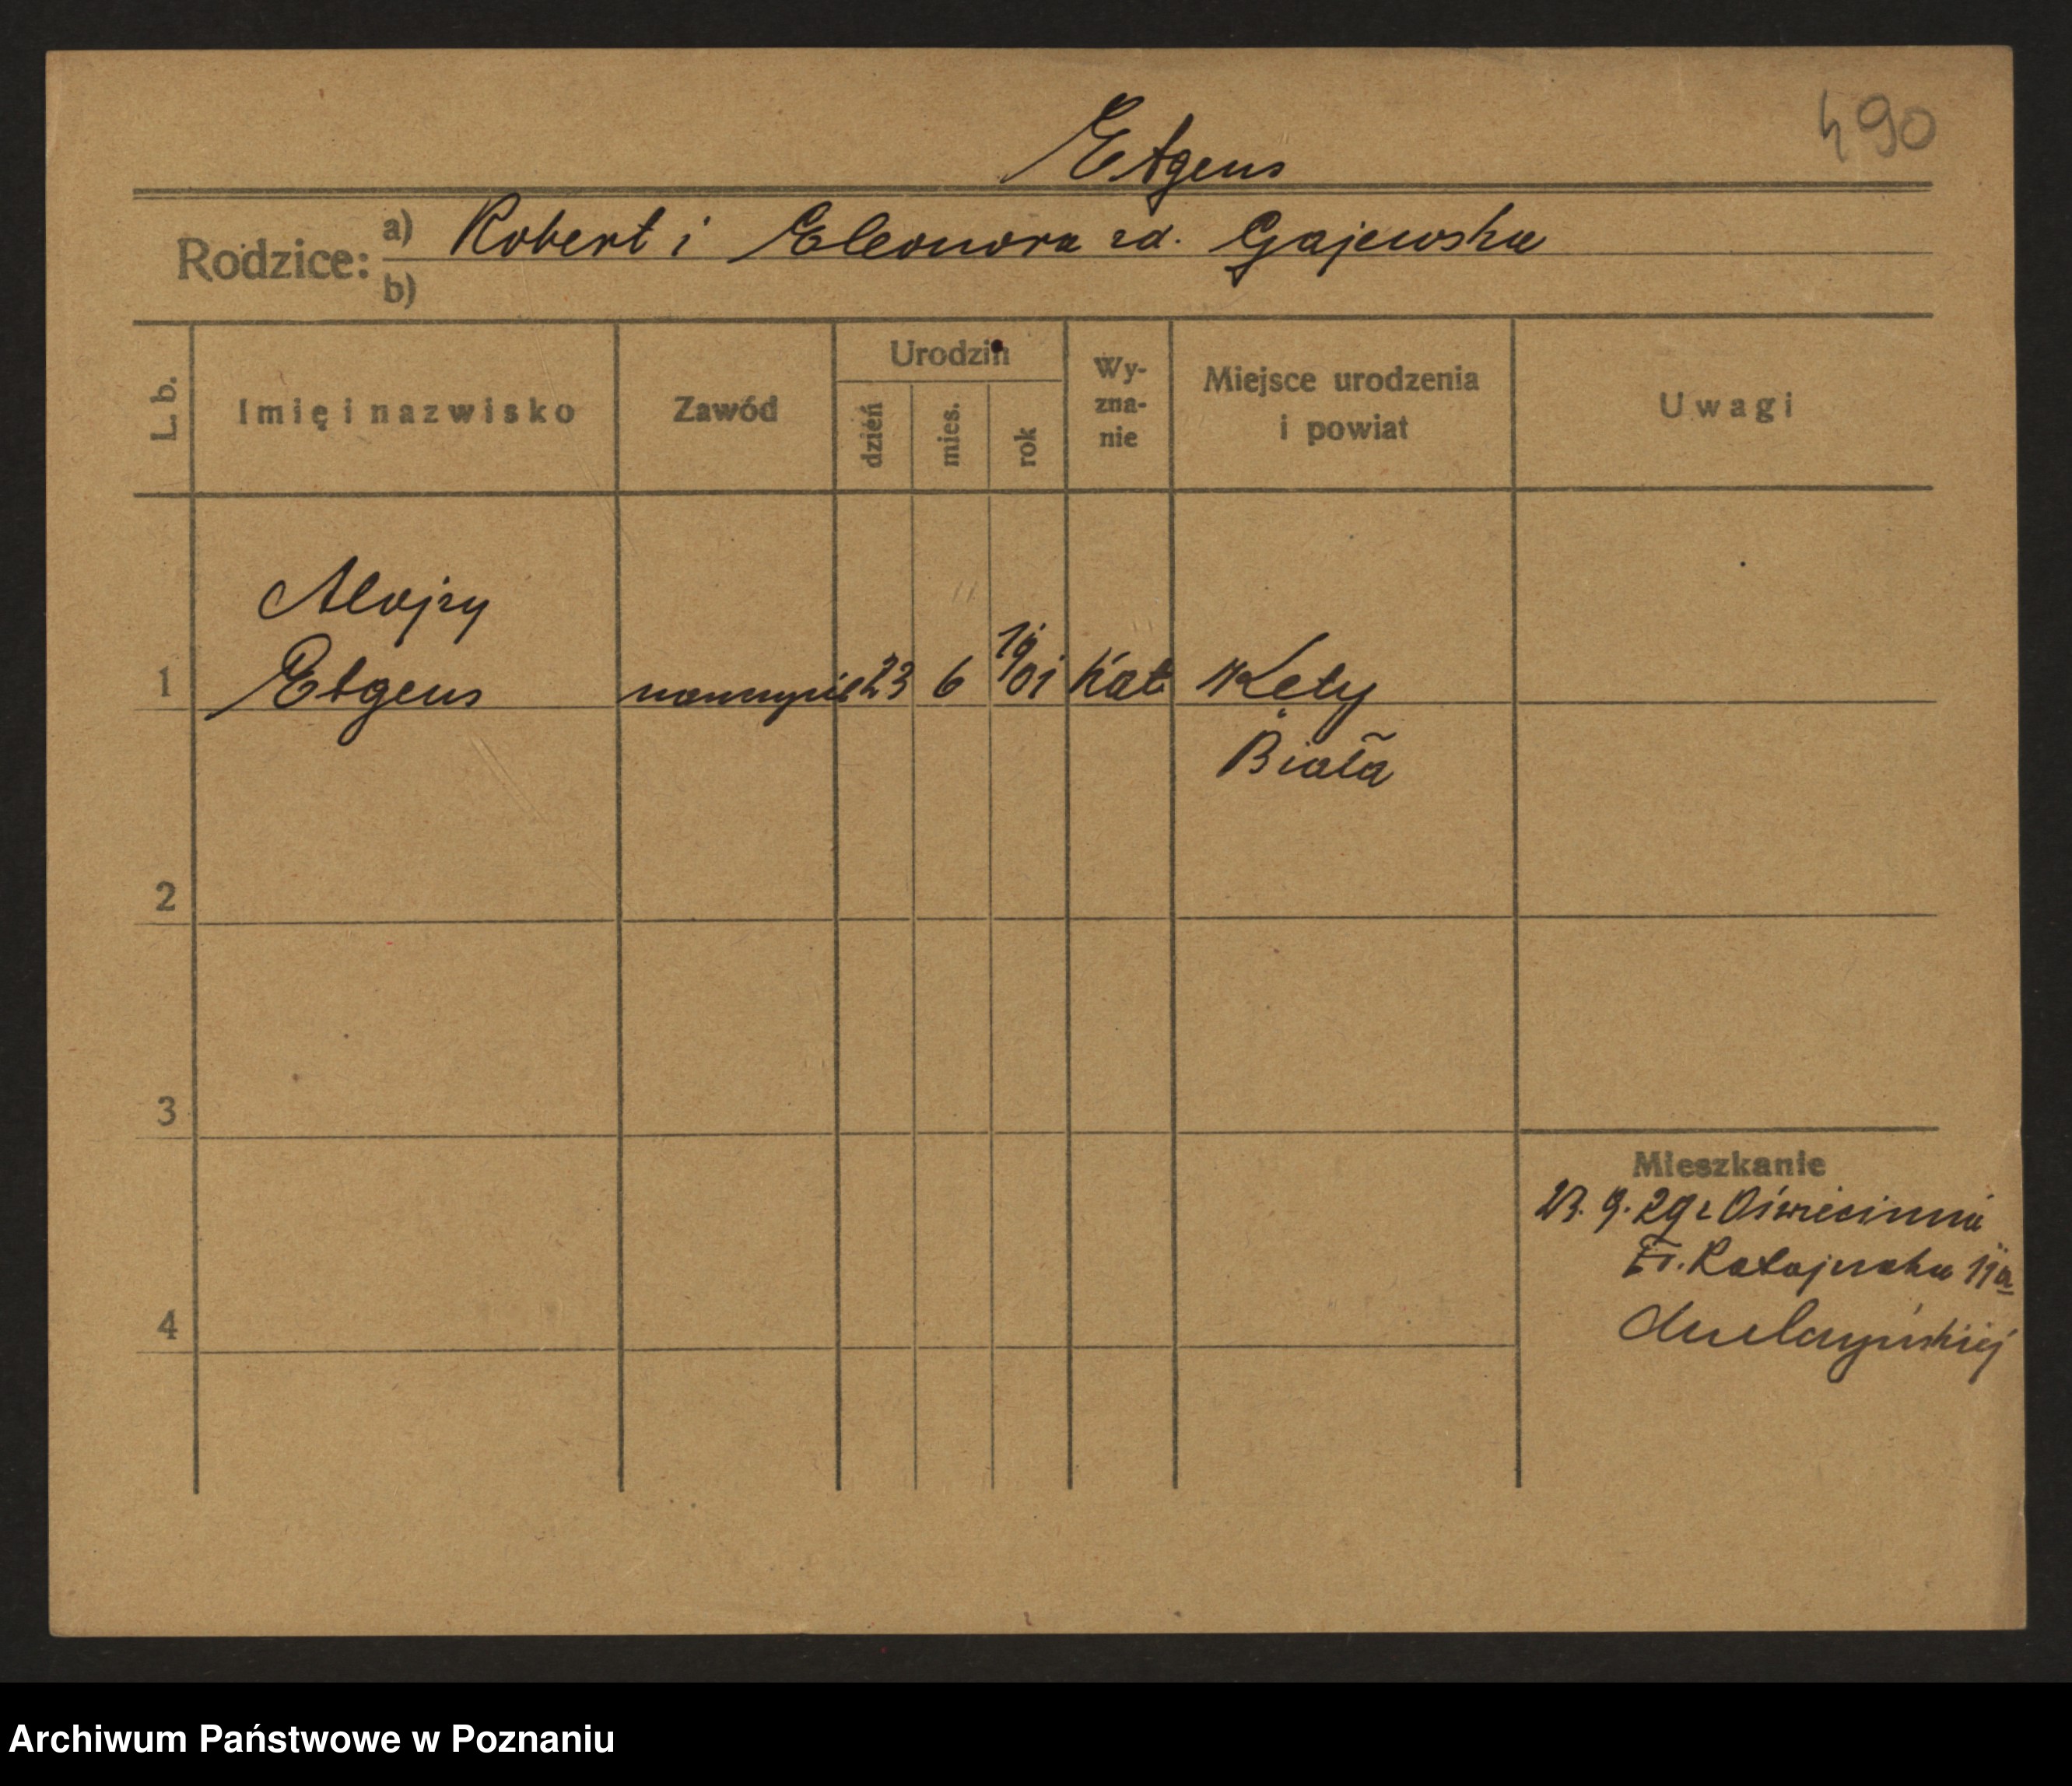 490
Etgens
Rodzice: a) Robert i Eleonora zd. Gajewska
b)
L. b.
Imię i nazwisko
Zawód
Urodzin
dzień
mies.
rok
Wy-
zna-
nie
Miejsce urodzenia
i powiat
Uwagi
Alojzy
1 Etgens nauczyciel 23 6 19/01 Kat. Kęty
Biała
2
3
Mieszkanie
23. 9. 29 z Oświęcimia
Fr. Ratajczaka 11a
4
Archiwum Państwowe w Poznaniu